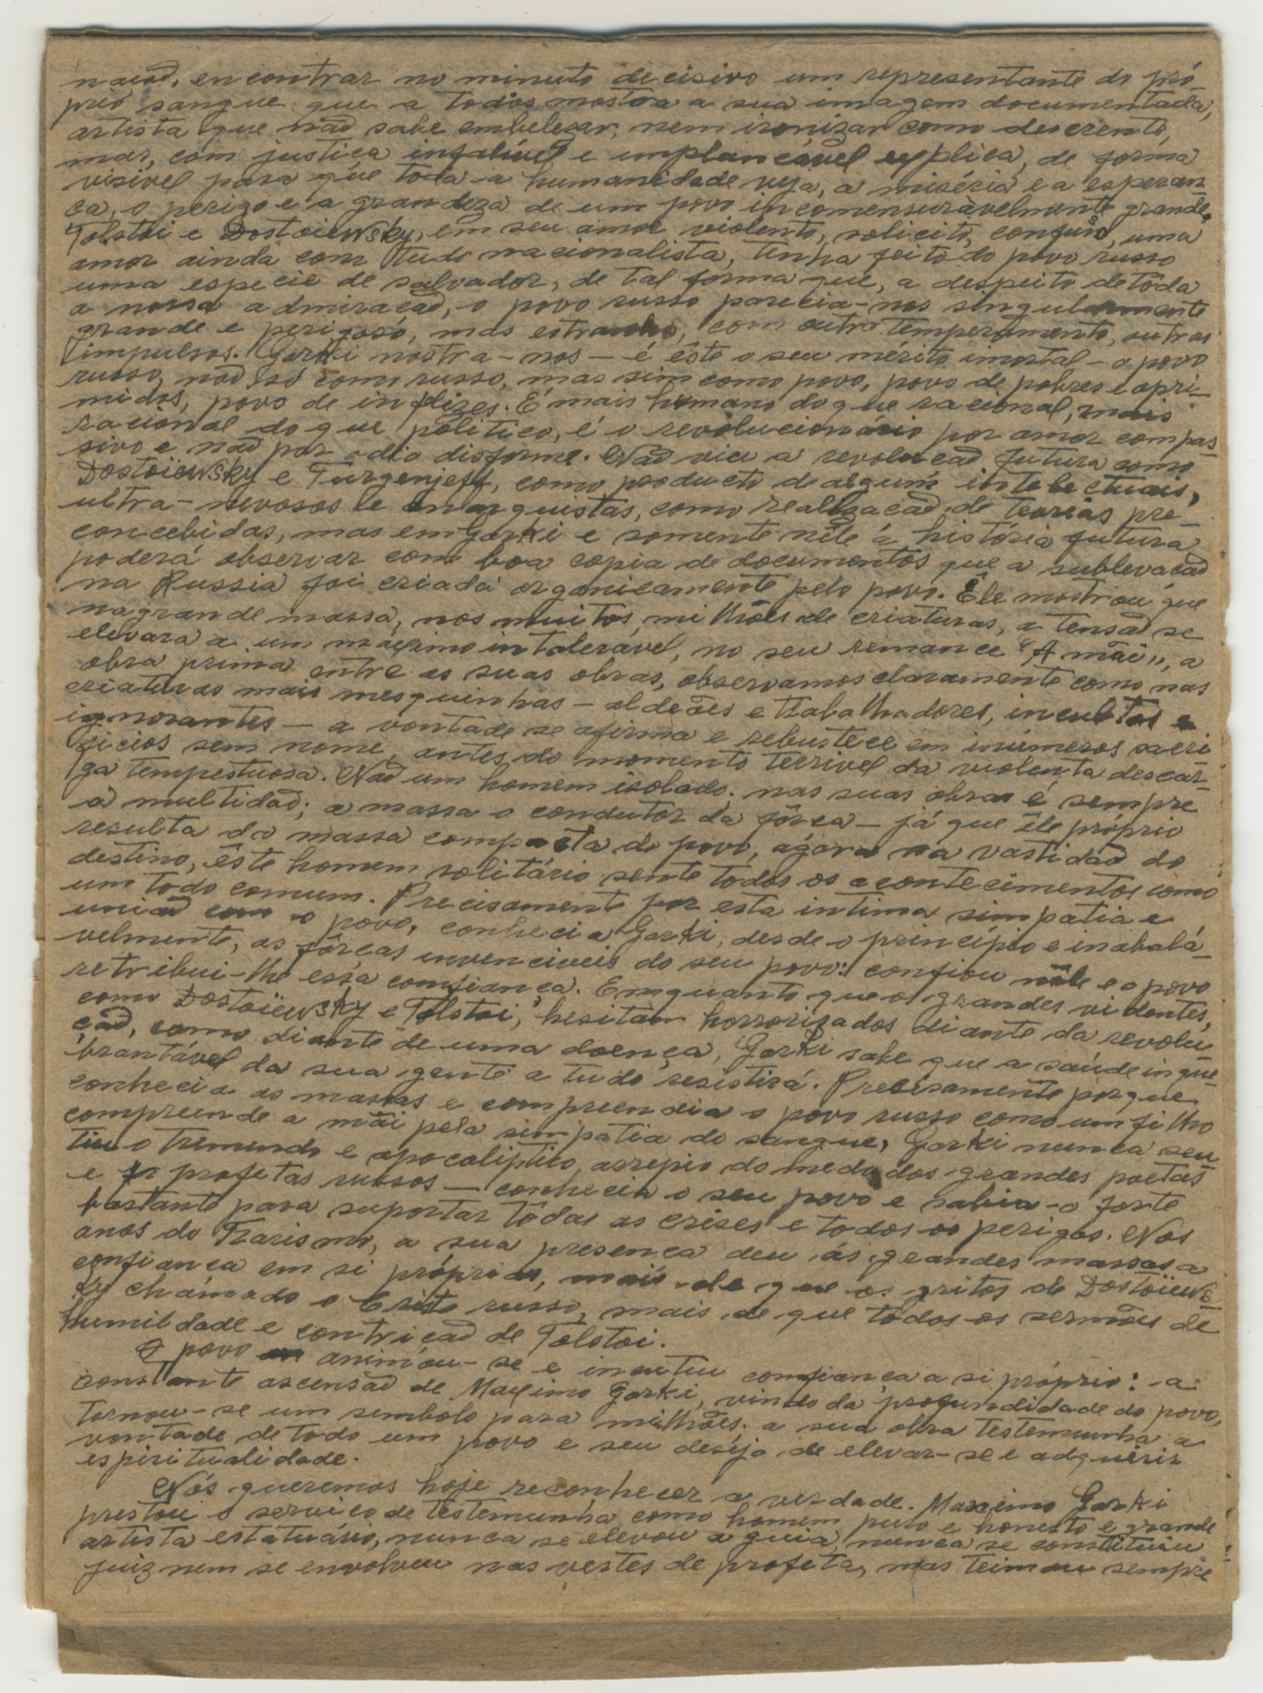 nação, encontrar no minuto decisivo um representante do pró-
prio sangue que a todos mostra a sua imagem documentada,
artista que não sabe embelezar, nem ironizar como descrente,
mas, com justiça infalível e implancável explica, de forma
visivel para que toda a humanidade veja, a miséria e a esperan-
ça, o perigo e a grandeza de um povo incomensuràvelmente grande.
Tolstoi e Dostoiewsky, em seu amor violento, solicito, confuso, uma
amor ainda com tudo nacionalista, tinha feito do povo russo
uma especie de salvador, de tal forma que, a despeito de tôda
a nossa admiração, o povo russo parecia-nos singularmente
grande e perigoso, mas estranho, com outro temperamento, outros
impulsos. Gorki mostra-nos — é êste o seu mérito imortal — o povo
russo, não só como russo, mas sim como povo, povo de pobres e opri-
midos, povo de infelizes. É mais humano do que racional, mais
racional do que político, é o revolucionario por amor compas-
sivo e não por odio disforme. Não viu a revolução futura como
Dostoiewsky e Turgenjeff, como producto de alguns intelectuais,
ultra-nervosos e anarquistas, como realização de teorias pre-
concebidas, mas em Gorki e somente nêle a história futura
poderá observar com boa copia de documentos que a sublevação
na Russia foi criada organicamente pelo povo. Êle mostrou que
na grande massa, nos muitos milhões de criaturas, a tensão se
elevara a um máximo intoleravel, no seu romance "A mãi", a
obra prima entre as suas obras, observamos claramente como nas
criaturas mais mesquinhas — aldeões e trabalhadores, incultos e
ignorantes — a vontade se afirma e robustece em inúmeros sacri-
ficios sem nome, antes do momento terrivel da violenta descar-
ga tempestuosa. Não um homem isolado, nas suas obras é sempre
a multidão; a massa o condutor da fôrça — já que êle próprio
resulta da massa compacta do povo, agora na vastidão do
destino, êste homem solitário sente todos os acontecimentos como
um todo comum. Precisamente por esta intima simpatia e
união com o povo, conhecia Gorki, desde o princípio e inabalá-
velmente, as fôrças invenciveis do seu povo: confiou nêle e o povo
retribui-lhe essa confiança. Emquanto que os grandes videntes,
como Dostoïewsky e Tolstoi, hesitam horrorizados diante da revolu-
ção, como diante de uma doença, Gorki sabe que a saúde inque-
brantável da sua gente a tudo resistirá. Precisamente porque
conhecia as massas e compreendia o povo russo como um filho
compreende a mãi pela simpatia do sangue, Gorki nunca sen-
tiu o tremendo e apocaliptico, arrepio do medo dos grandes poetas
e profetas russos — conhecia o seu povo e sabia-o forte
bastante para suportar tôdas as crises e todos os perigos. Nos
anos do Tzarismo, a sua presença deu ás grandes massas a
confiança em si próprias, mais do que os gritos de Dostoïews-
ky chámado o Cristo russo, mais de que todos os sermões de
humildade e contrição de Tolstoi.
O povo animou-se e incutiu confiança a si próprio: a
constante ascensão de Maximo Gorki, vindo da profundidade do povo,
tornou-se um simbolo para milhões; a sua obra testemunha a
vontade de todo um povo e seu desejo de elevar-se e adquirir
espiritualidade.
Nós queremos hoje reconhecer a verdade. Maximo Gorki
prestou o serviço de testemunha como homem puro e honesto e grande
artista estatuário, nunca se elevou a guia, nunca se constituiu
juiz nem se envolveu nas vestes de profeta, mas teimou sempre